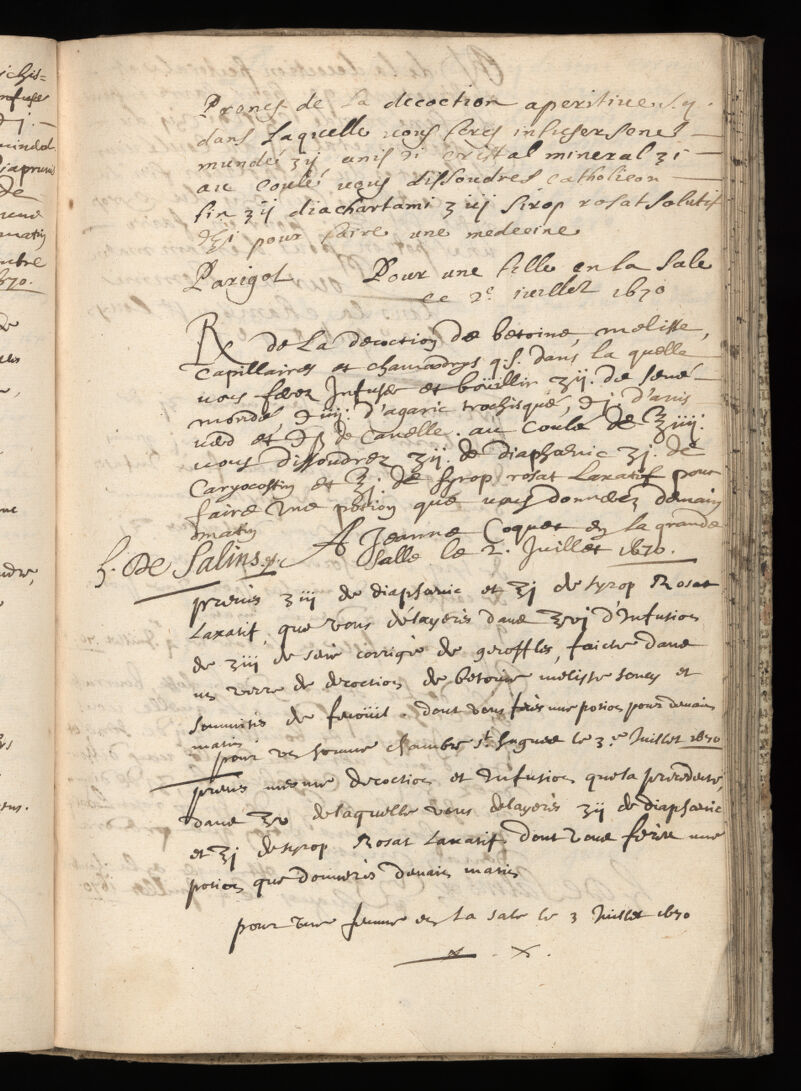 Prenes de La decoction aperitive s. q.
dans Laquelle vous feres infuser sene
mundé ʒij anis ℈i cristal mineral ʒi
au coulé vous dissoudres catholicon
fin ʒij diachartami ʒiij sirop rosat solutif
℥i pour faire une medecine
Parigot Pour une fille en la sale
ce 2e iuillet 1670
℞ de La decoction de betoine, melisse,
Capillaires et chamædrys q.s. dans la quelle
vous ferez Infuser et boüillir ʒij. de sené
mondé, ℈iiij. d'agaric trochisqué, ℈j. d'anis
verd et ℈ß de Canelle. au Coulé de ℥iiij.
vous dissoudrez ʒij. de diaphœnic ʒj. de
Caryocostin et ℥j. de Syrop rosat Laxatif pour
faire une potion que vous donnerez demain
matin
A Jeanne Coquet en la grande
h. De Salins
Salle le 2. Juillet 1670.
prenes ʒiij de diaphœnic et ℥j de syrop Rosat
Laxatif, que vous délayerés dans ℥vj d'Infusion
de ʒiij de séné corrigé de geroffles, faicte dans
un verre de decoction de betoine melisse soucy et
sommités de fenoüil. dont vous ferés une potion pour demain
matin
pour un homme chambre St. hugues le 3.e Juillet 1670
prenes mesme decoction et Infusion que la precedente,
dans ℥v delaquelle vous delayerés ʒij de diaphœnic
et ℥j de syrop Rosat Laxatif dont vous ferés une
potion que donnerés demain matin
pour une femme en la sale le 3 Juillet 1670